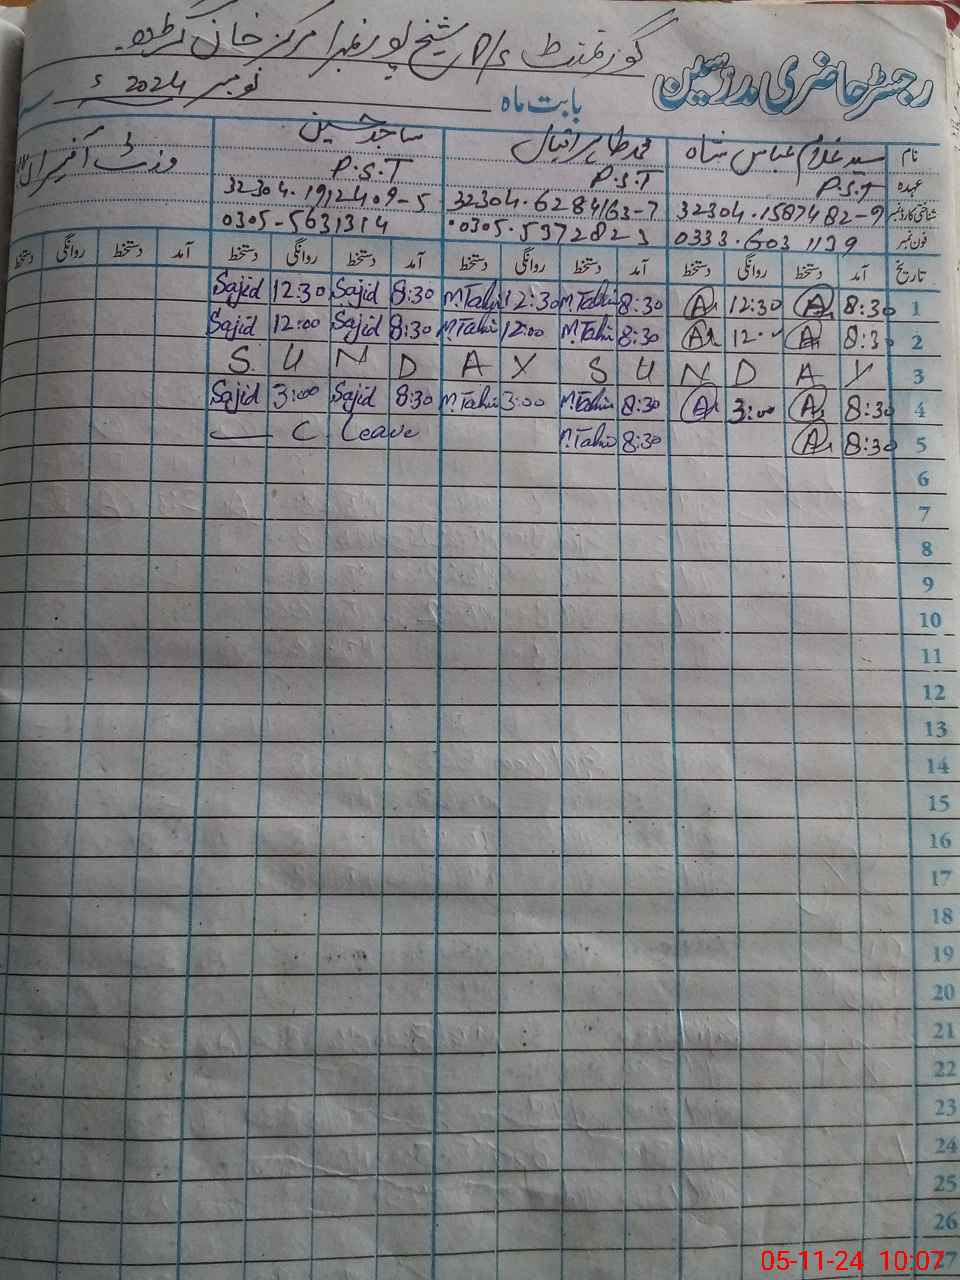 گورنمنٹ P/S شیخ پور نمبر1 مرکز خان گڑھ
رجسٹر حاضری مدرسین
بابت ماہ نومبر 2024ء
نام سید غلام عباس شاہ محمد طاہر اقبال ساجد حسین وزٹ آفیسران
عہدہ P.S.T P.S.T P.S.T
شناختی کارڈ نمبر 32304.1587482-9 32304.6284163-7 32304.1912409-5
فون نمبر 0333.6031139 0305.5372823 0305-5631314
تاریخ آمد دستخط روانگی دستخط آمد دستخط روانگی دستخط آمد دستخط روانگی دستخط آمد دستخط روانگی دستخط
1 8:30 12:30 8:30 M.Tahir 12:30 M.Tahir 8:30 Sajid 12:30 Sajid
2 8:30 12:00 8:30 M.Tahir 12:00 M.Tahir 8:30 Sajid 12:00 Sajid
SUNDAY SUNDAY 3
4 8:30 3:00 8:30 M.Tahir 3:00 M.Tahir 8:30 Sajid 3:00 Sajid
5 8:30 8:30 M.Tahir C Leave
6
7
8
9
10
11
12
13
14
15
16
17
18
19
20
21
22
23
24
25
26
27
05-11-24 10:07